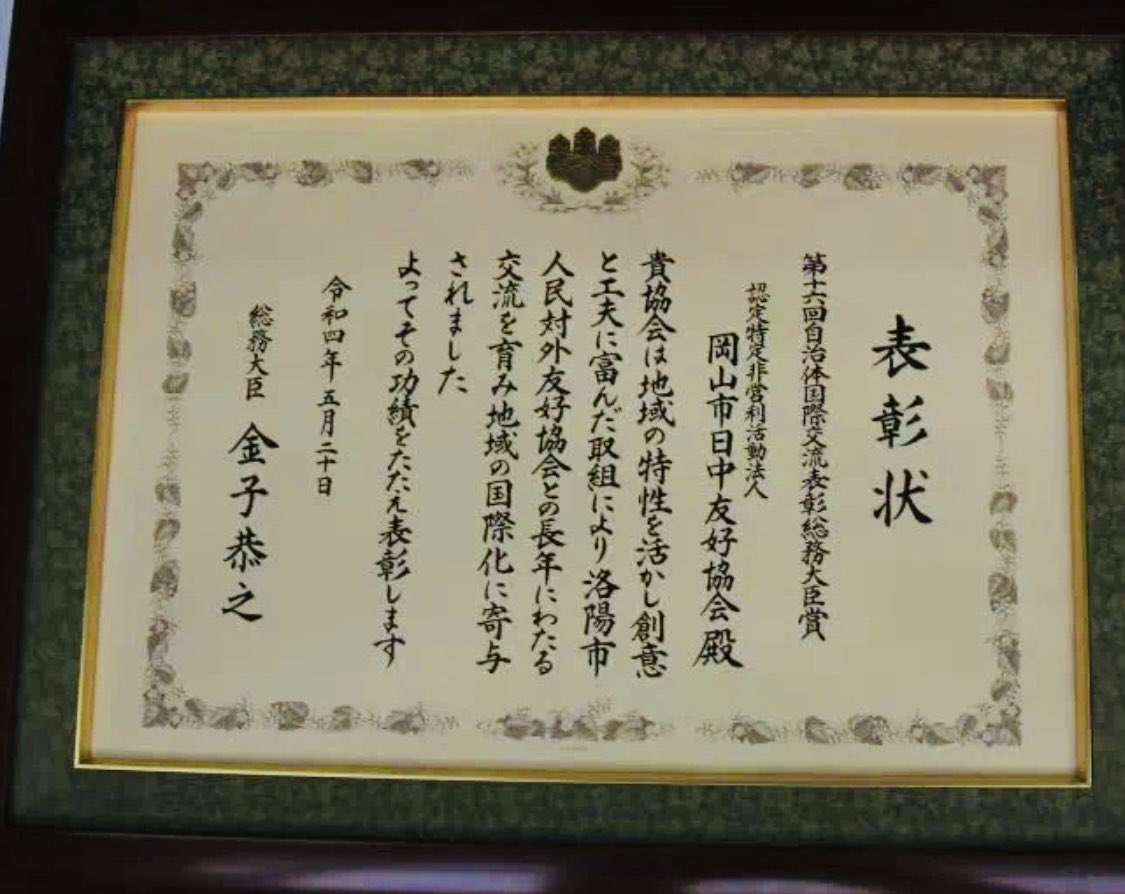 表彰状
第十六回自治体国際交流表彰総務大臣賞
認定特定非営利活動法人
岡山市日中友好協会殿
貴協会は地域の特性を活かし創意
と工夫に富んだ取組により洛陽市
人民対外友好協会との長年にわたる
交流を育み地域の国際化に寄与
されました
よってその功績をたたえ表彰します
令和四年五月二十日
総務大臣 金子恭之